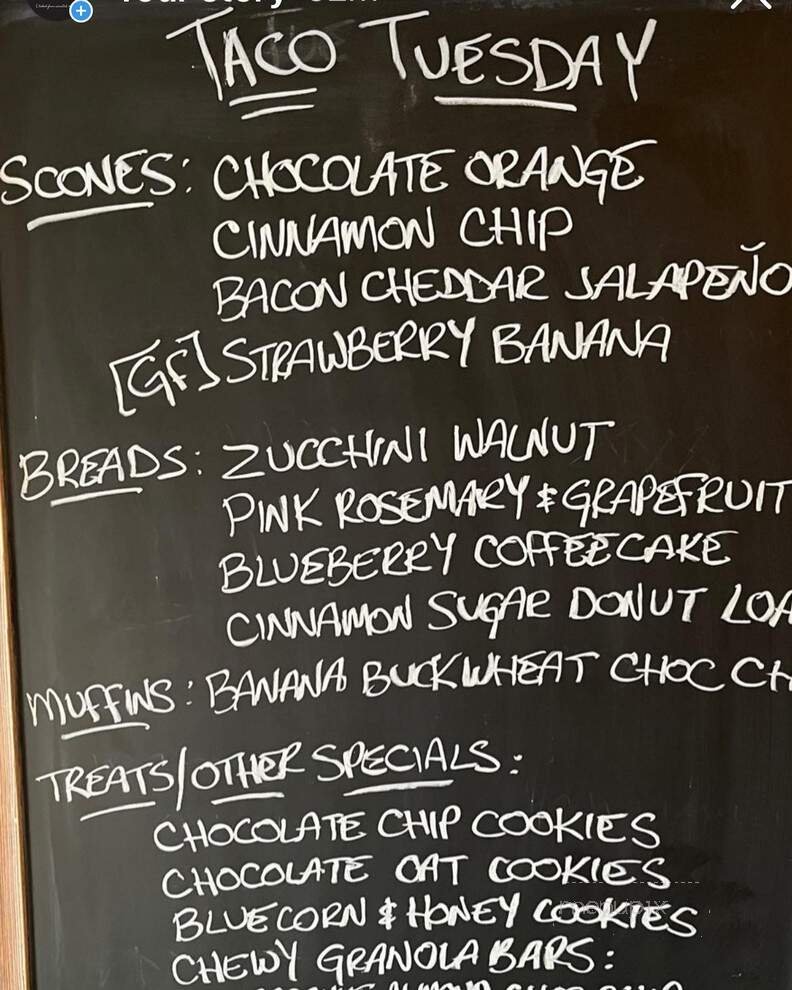 TACO TUESDAY
SCONES: CHOCOLATE ORANGE
CINNAMON CHIP
BACON CHEDDAR JALAPEÑO
[GF] STRAWBERRY BANANA
BREADS: ZUCCHINI WALNUT
PINK ROSEMARY & GRAPEFRUIT
BLUEBERRY COFFEECAKE
CINNAMON SUGAR DONUT LOA
MUFFINS: BANANA BUCKWHEAT CHOC CH
TREATS/OTHER SPECIALS:
CHOCOLATE CHIP COOKIES
CHOCOLATE OAT COOKIES
BLUE CORN & HONEY COOKIES
CHEWY GRANOLA BARS: